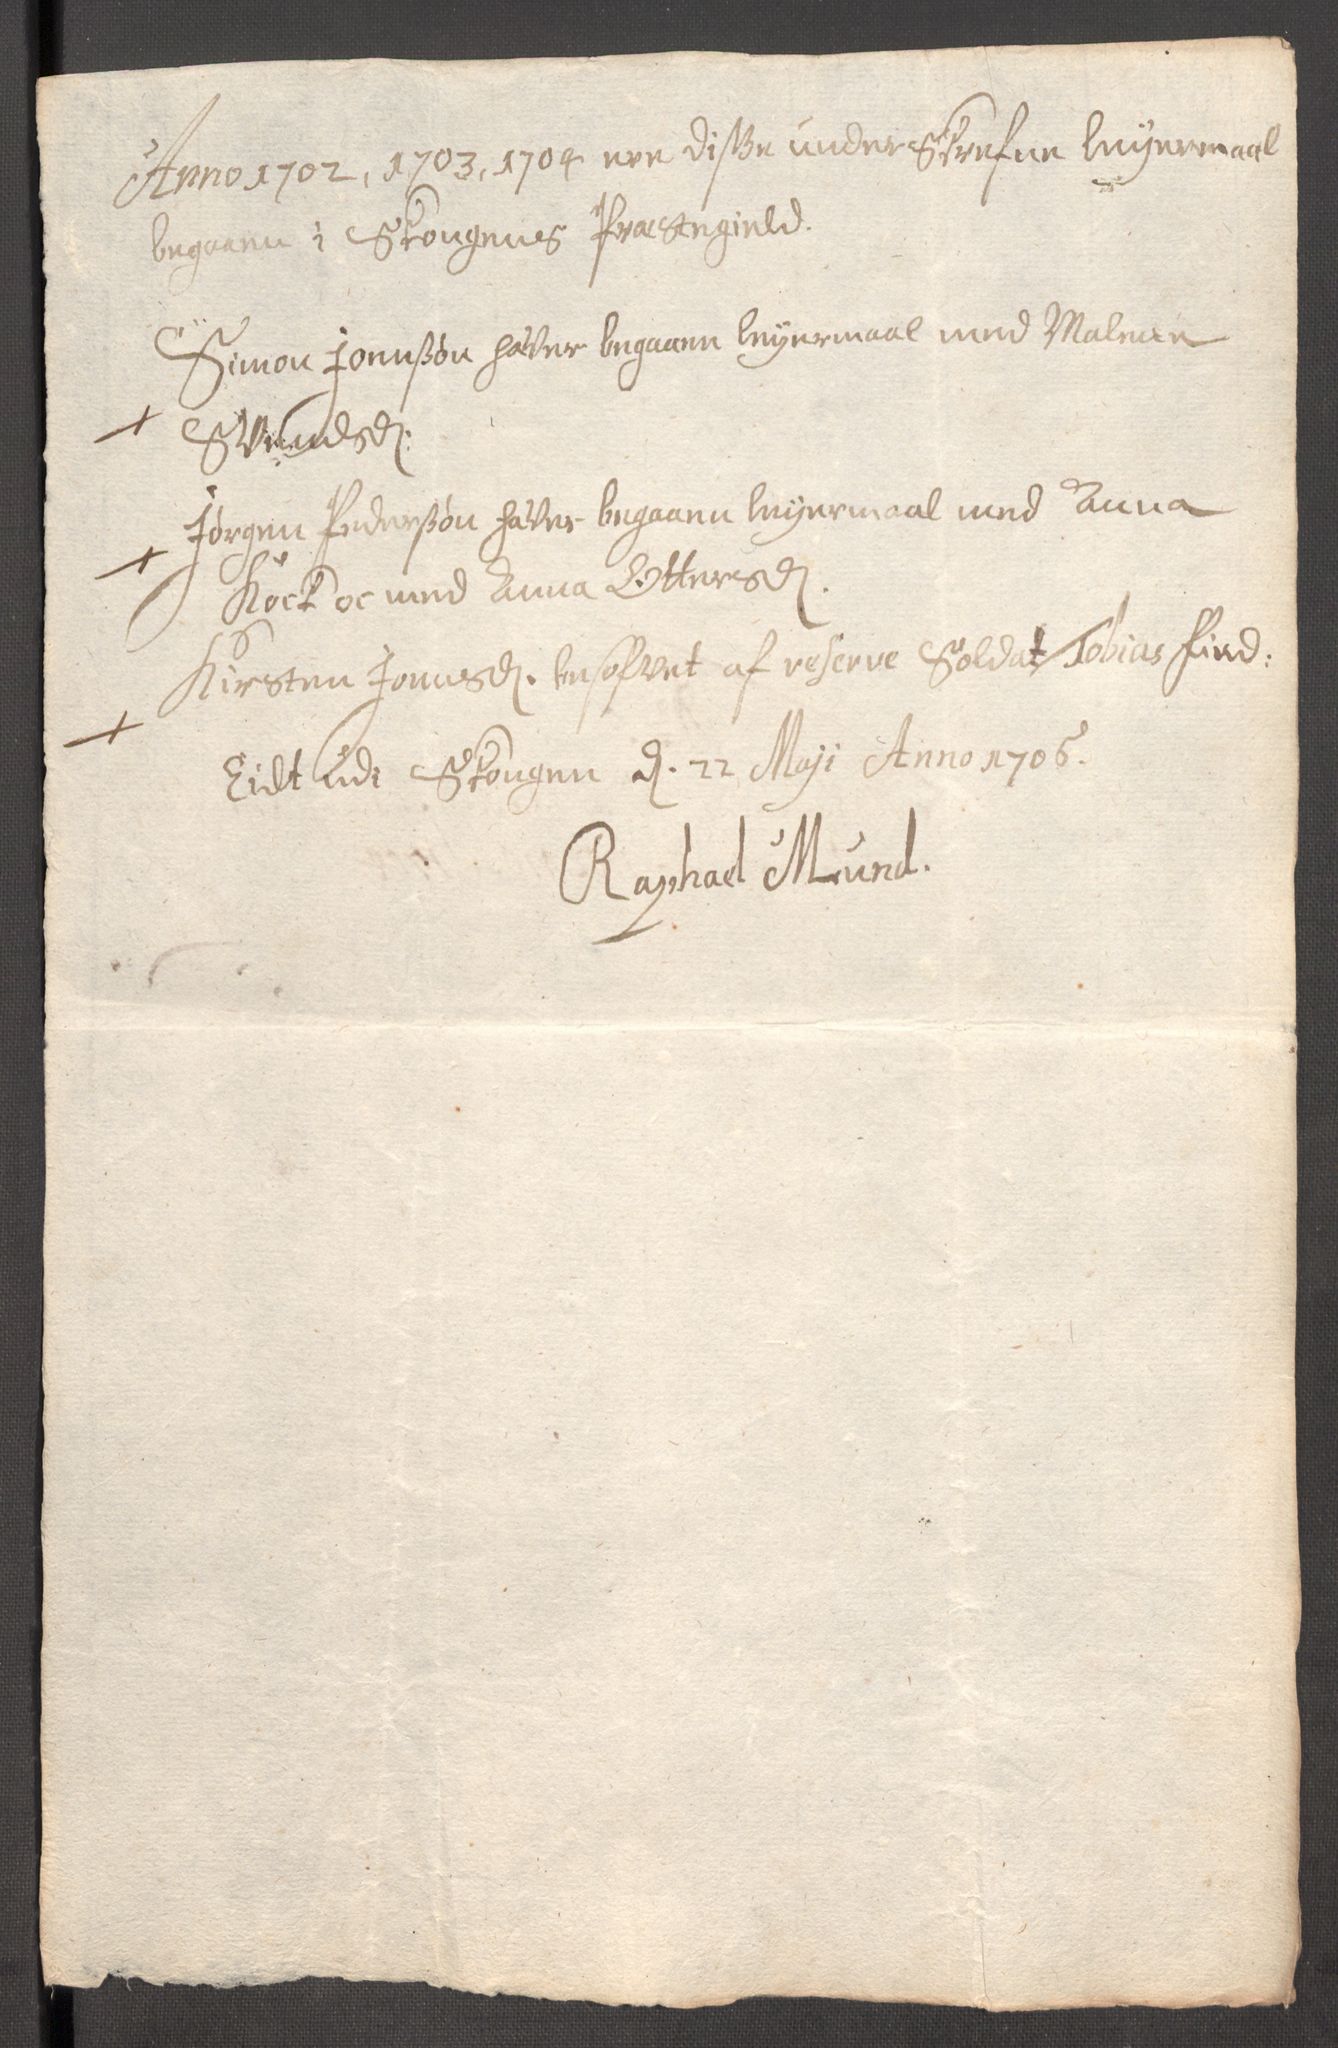 Anno 1702, 1703, 1704 ere diße underSkrefne leyermaal
begaaen i Skongenes Præstegield.
Simon Jonnßøn haver begaaen leyermaal med Malene
+ Svendsd.
Jørgen Pederßøn haver begaaen leyermaal med Anna
+ Kock oc med Anna Ottersd.
Kirsten Jonnsd. besofvet af reserve Soldat Tobias
+
udi Skongen d. 22 Maji Anno 1706.
Raphael Mund.